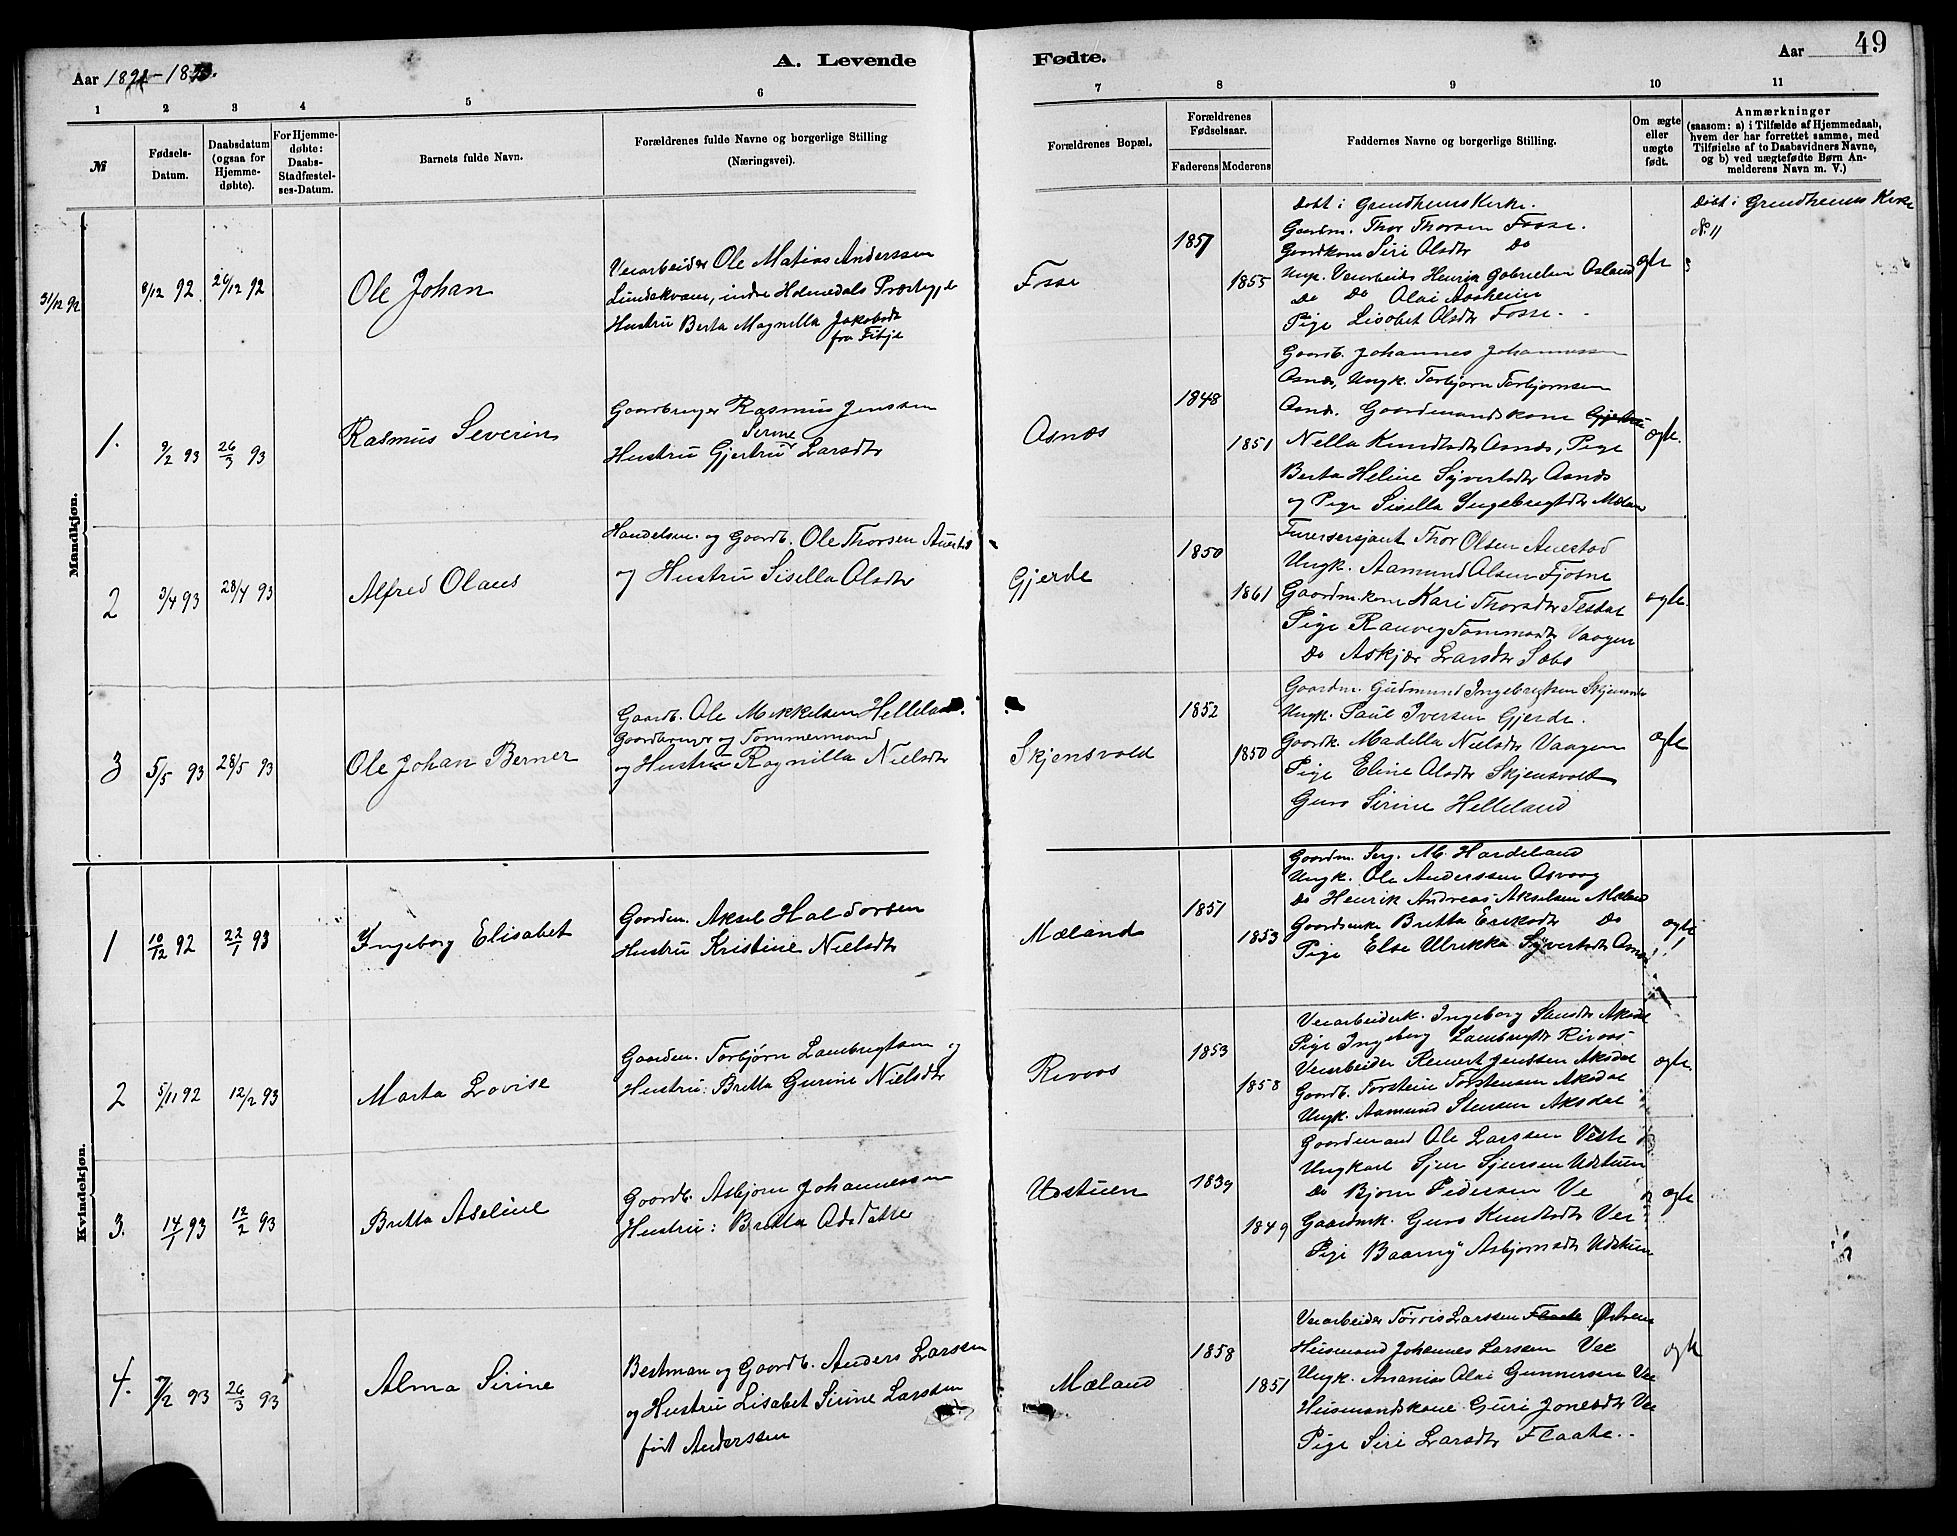 Aar 1892-1893.
A. Levende
Fødte.
Aar 49
1 2 3 4 5 6 7 8 9 10 11
№
Fødsels-Datum.
Daabsdatum (ogsaa for Hjemme-døbte).
For Hjemme-døbte: Daabs-Stadfæstel-ses-Datum.
Barnets fulde Navn.
Forældrenes fulde Navne og borgerlige Stilling
(Næringsvei).
Forældrenes Bopæl.
Forældrenes Fødselsaar.
Faderens Moderens
Faddernes Navne og borgerlige Stilling.
Om ægte eller uægte født.
Anmærkninger
(saasom: a) i Tilfælde af Hjemmedaab,
hvem der har forrettet samme, med
Tilføielse af to Daabsvidners Navne,
og b) ved uægtefødte Børn An-
melderens Navn m. V.)
Mandkjøn.
31/12 92
8/12 92
26/12 92
Ole Johan
Veiarbeider Ole Matias Anderssen
Lundekvam, indre Holmedals Præstegj.
Hustru Berta Magnilla Jakobsdt
fra Fitje
Fosse
1857
1855
Døbt i Grindheims Kirke.
Gaardm. Thor Thorsen Fosse.
Gaardkone Siri Olsdtr Do
Ungk. Veiarbeid. Henrik Gabrielsen Osland
Do Do Olai Aaheim
Pige Lisabet Olsdtr Fosse.
ægte
Døbt i Grindheims Kirke
N. 11
1.
9/2 93
26/3 93
Rasmus Severin
Gaardbruger Rasmus Jenssen
Serine
Hustru Gjertru Larsdtr
Osnæs
1848
1851
Gaardb. Johannes Johannessen
Osnæs, Ungk. Torbjørn Torbjørnsen
Osnæs. Gaardmandskone Gjertru
Nella Knudsdtr Osnæs, Pige
Berta Heline Syvertsdtr Osnæs
og Pige Sisella Ingebregtsdtr Mæland
ægte.
2
3/4 93
28/4 93
Alfred Olaus
Handelsm. og Gaardb. Ole Thorsen Auestad
og Hustru Sisella Olsdtr
Gjerde
1850
1861
Furersersjant Thor Olsen Auestad
Ungk. Aamund Olsen Fjøsne
Gaardm.kone Kari Thorsdtr Tesdal
Pige Ranveg Tommasdtr Vaagen
Do Askjær Larsdtr Sæbø
ægte.
3
5/5 93
28/5 93
Ole Johan Berner
Gaardb. Ole Mikkelsen Helleland.
Gaardbruger og Tømmermand
og Hustru Ragnilla Nielsdtr
Skjensvold
1852
1850
Gaardm. Gudmund Ingebregtsen Skjensvold
Ungk. Paul Iversen Gjerde.
Gaardk. Madella Nielsdtr Vaagen
Pige Eline Olsdtr Skjensvold
Guro Sirine Helleland
ægte
Kvindekjøn.
1
10/12 92
22/1 93
Ingeborg Elisabet
Gaardm. Aksel Haldorsen
Hustru Kristine Nielsdtr
Mæland
1851
1853
Gaardm. Serg. M. Hardeland
Ungk. Ole Anderssen Osvaag
Do Henrik Andreas Akselsen Mæland
Gaardenke Britta Eriksdtr Do
Pige Else Ulrikka Syvertsdtr Osnæs
ægte
2
5/11 92
12/2 93
Marta Lovise
Gaardm. Torbjørn Lambregtsen og
Hustru: Britta Gurine Nielsdtr
Rivoos
1853
1858
Veiarbeiderk. Ingeborg Larsdtr Aksdal
Pige Ingeborg Lambregtsdtr Rivoos
Veiarbeider Reinert Jenssen Aksdal
Gaardb. Torstein Torstensen Aksdal
Ungk. Aamund Stensen Aksdal
ægte.
3.
14/1 93
12/2 93
Britta Aseline
Gaardb. Asbjørn Johannessen
Hustru: Britta Odsdatter
Udstuen
1839
1849
Gaardmand Ole Larssen Veste
Ungkarl Sjur Sjursen Udstuen
Do Bjørn Pedersen Ve
Gaardmk. Guro Knudsdtr Vee
Pige Baarny Asbjørnsdtr Udstuen
ægte
4.
7/2 93
26/3 93
Alma Sirine
Bestman og Gaardb. Anders Larssen
og Hustru Lisabet Sirine Larssen
født Anderssen
Mæland
1858
1851
Veiarbeider Tørris Larssen Flaate Østrem
Husmand Johannes Larssen Vee
Ungk. Ananias Olai Gunnersen Vee
Husmandskone Guri Jonesdtr Vee
Pige Siri Larsdtr Flaate.
ægte